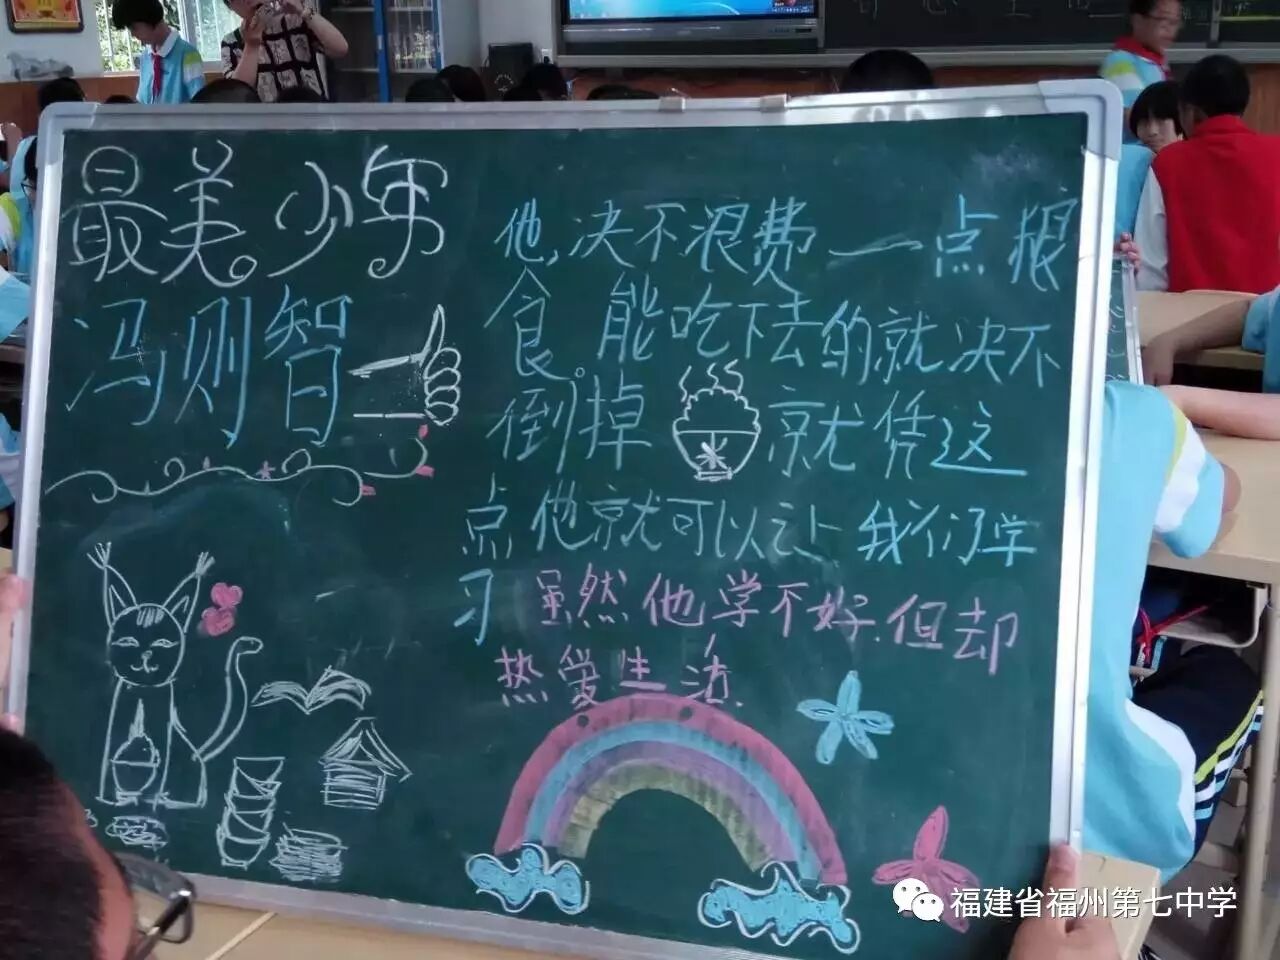 最美少年
冯则智
他,决不浪费一点粮
食。能吃下去的就决不
倒掉 就凭这
点他就可以让我们学
习 虽然他学不好.但却
热爱生活.
米
福建省福州第七中学